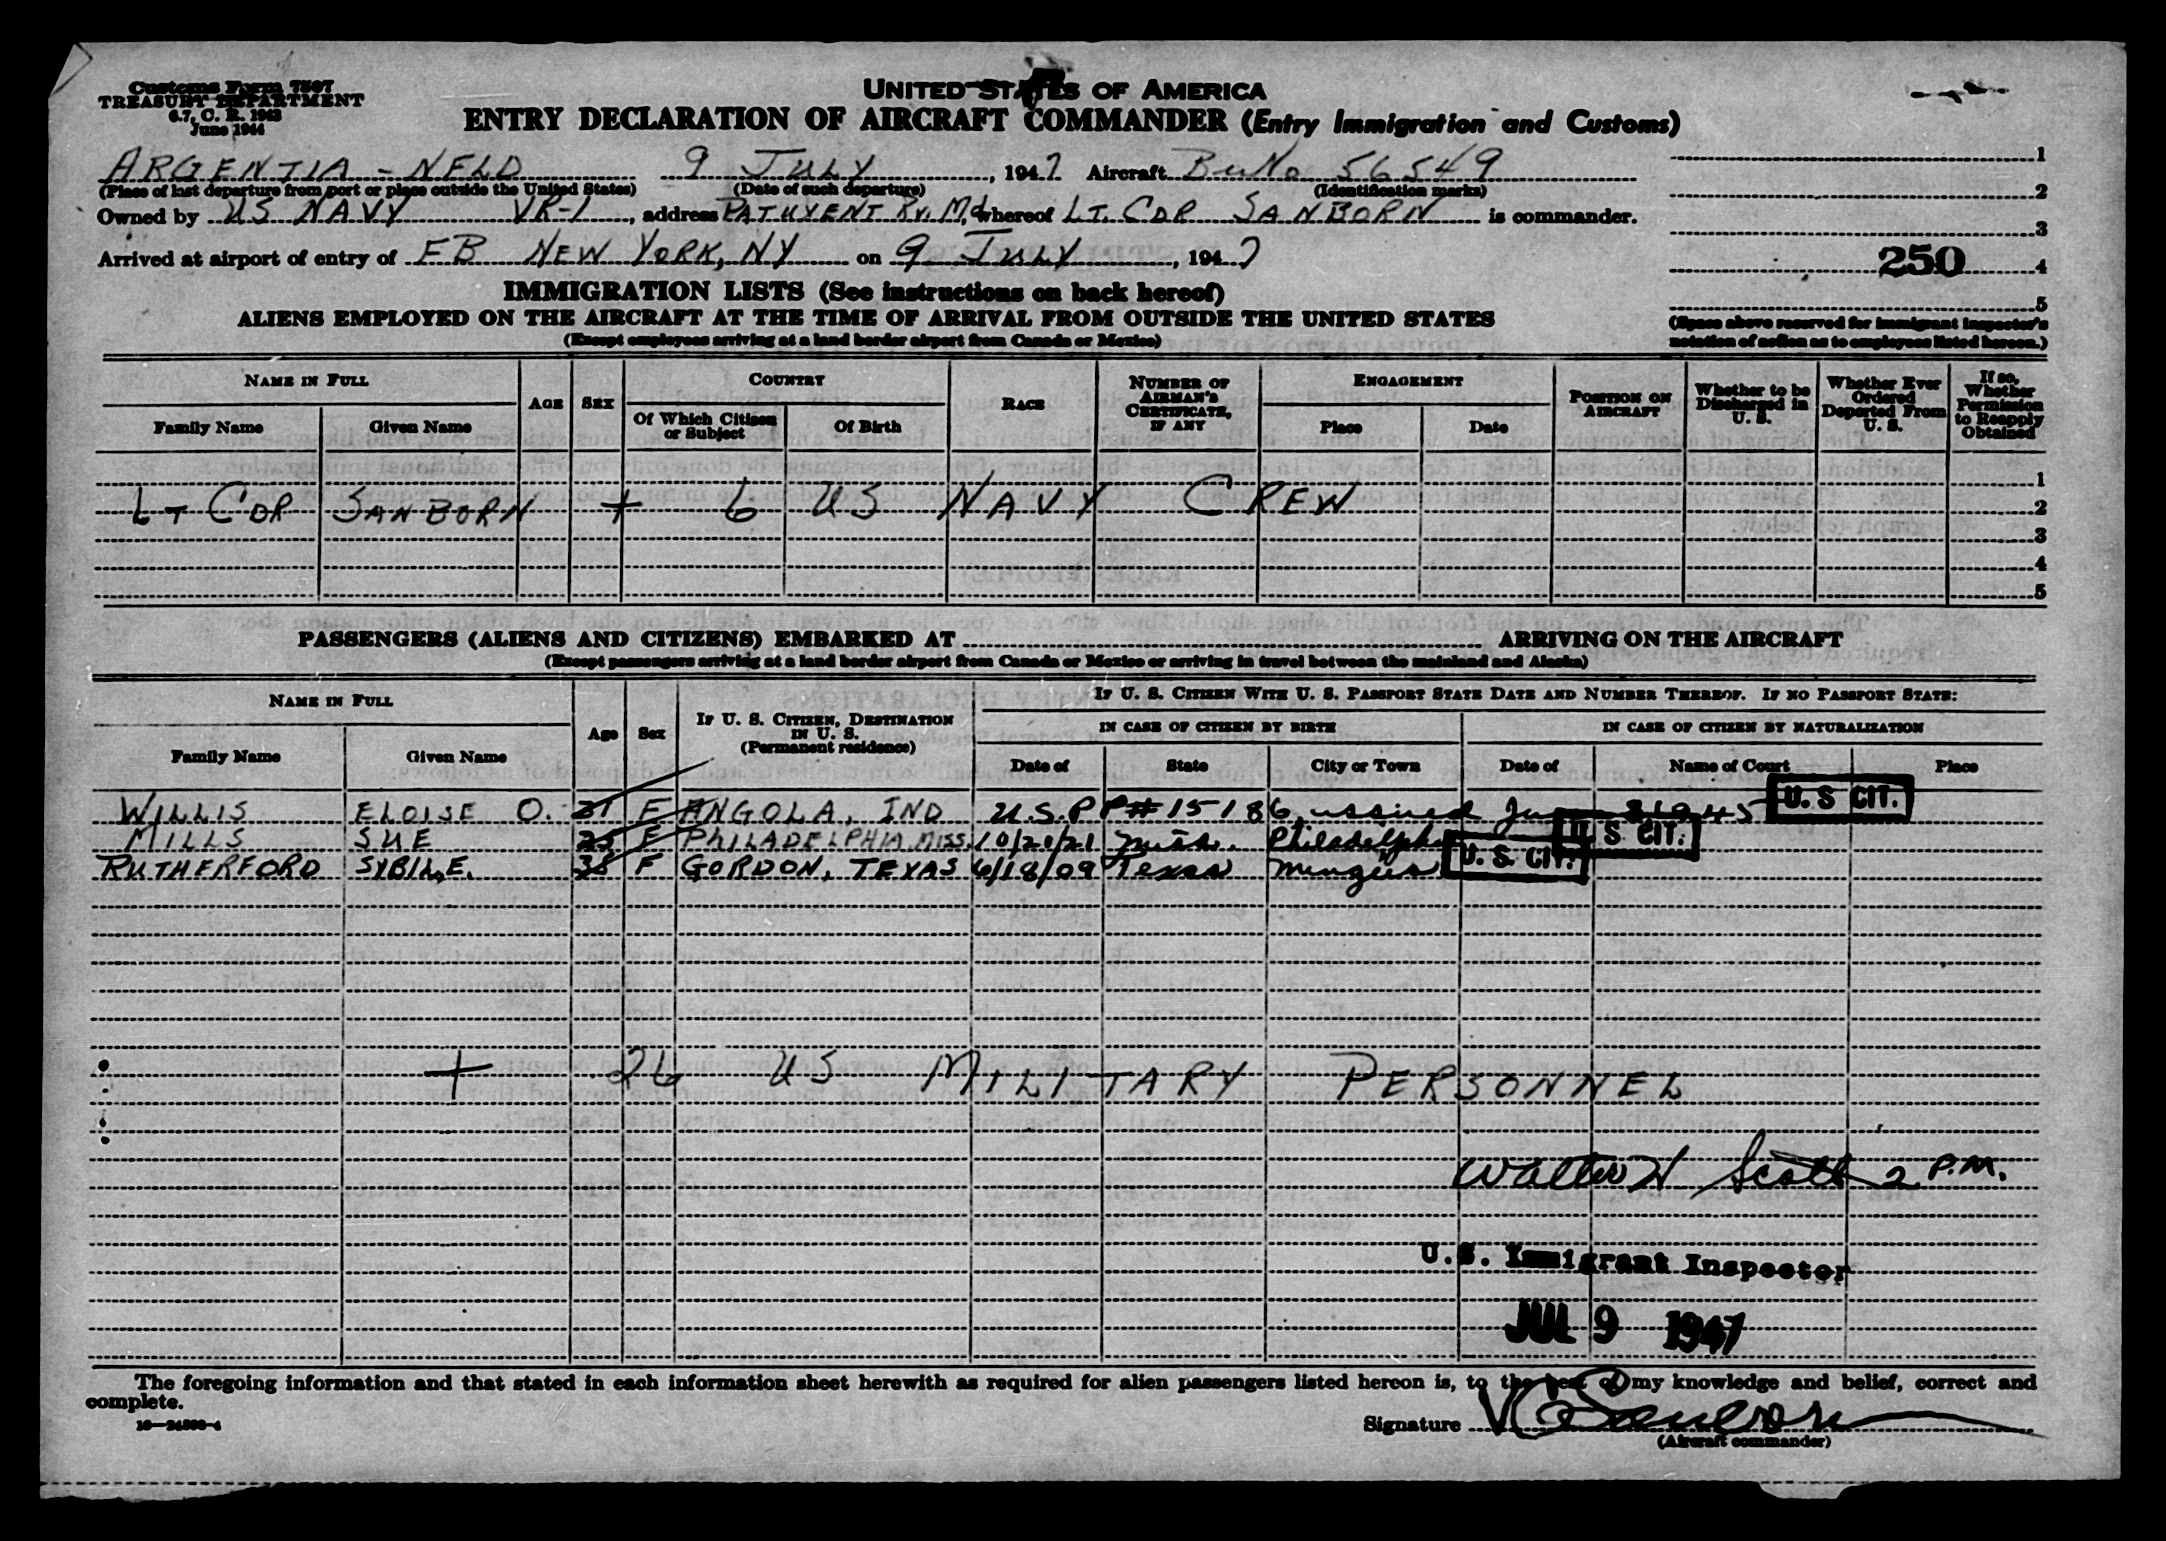 Customs Form 7507
TREASURY DEPARTMENT
6.7, C. R. 1943
June 1944
UNITED STATES OF AMERICA
ENTRY DECLARATION OF AIRCRAFT COMMANDER (Entry Immigration and Customs)
ARGENTIA - NFLD 9 JULY, 1947 Aircraft BuNo 56549
(Place of last departure from port or place outside the United States) (Date of such departure) (Identification marks)
Owned by US NAVY VR-1, address PATUXENT RV. Md, whereof LT. CDR SANBORN is commander.
Arrived at airport of entry of FB NEW YORK, NY on 9 JULY, 1947
1
2
3
250 4
5
(Space above reserved for immigrant inspector's
notation of action as to employees listed hereon.)
IMMIGRATION LISTS (See instructions on back hereof)
ALIENS EMPLOYED ON THE AIRCRAFT AT THE TIME OF ARRIVAL FROM OUTSIDE THE UNITED STATES
(Except employees arriving at a land border airport from Canada or Mexico)
NAME IN FULL
Family Name Given Name
AGE SEX
COUNTRY
Of Which Citizen or Subject Of Birth
RACE
NUMBER OF AIRMAN'S CERTIFICATE, IF ANY
ENGAGEMENT
Place Date
POSITION ON AIRCRAFT
Whether to be Discharged in U. S.
Whether Ever Ordered Deported From U. S.
If so, Whether Permission to Reapply Obtained
1
LT CDR SANBORN + 6 US NAVY CREW 2
3
4
5
PASSENGERS (ALIENS AND CITIZENS) EMBARKED AT ARRIVING ON THE AIRCRAFT
(Except passengers arriving at a land border airport from Canada or Mexico or arriving in travel between the mainland and Alaska)
NAME IN FULL
Family Name Given Name
Age Sex
IF U. S. CITIZEN, DESTINATION IN U. S. (Permanent residence)
IF U. S. CITIZEN WITH U. S. PASSPORT STATE DATE AND NUMBER THEREOF. IF NO PASSPORT STATE:
IN CASE OF CITIZEN BY BIRTH IN CASE OF CITIZEN BY NATURALIZATION
Date of State City or Town Date of Name of Court Place
WILLIS ELOISE O. 31 F ANGOLA, IND U.S. PP# 15186 issued 1945 U. S CIT.
MILLS SUE 25 F PHILADELPHIA, MISS. 10/20/21 Miss. Philadelphia U S. CIT.
RUTHERFORD SYBIL, E. 38 F GORDON, TEXAS 6/18/09 Texas Mingus U. S. CIT.
+ 26 US MILITARY PERSONNEL
Walter H Scott 2 P.M.
U.S. Immigrant Inspector
JUL 9 1947
The foregoing information and that stated in each information sheet herewith as required for alien passengers listed hereon is, to the best of my knowledge and belief, correct and
complete.
Signature Sanborn
(Aircraft commander)